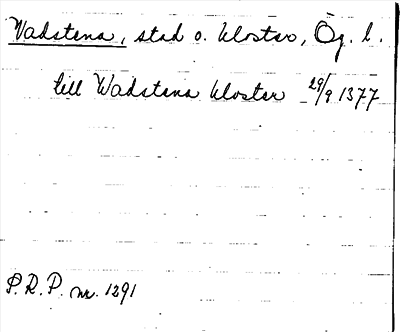 Vadstena, stad o. kloster, Ög. l.
till Wadstena kloster 29/9 1377
P.R.P. nr. 1291